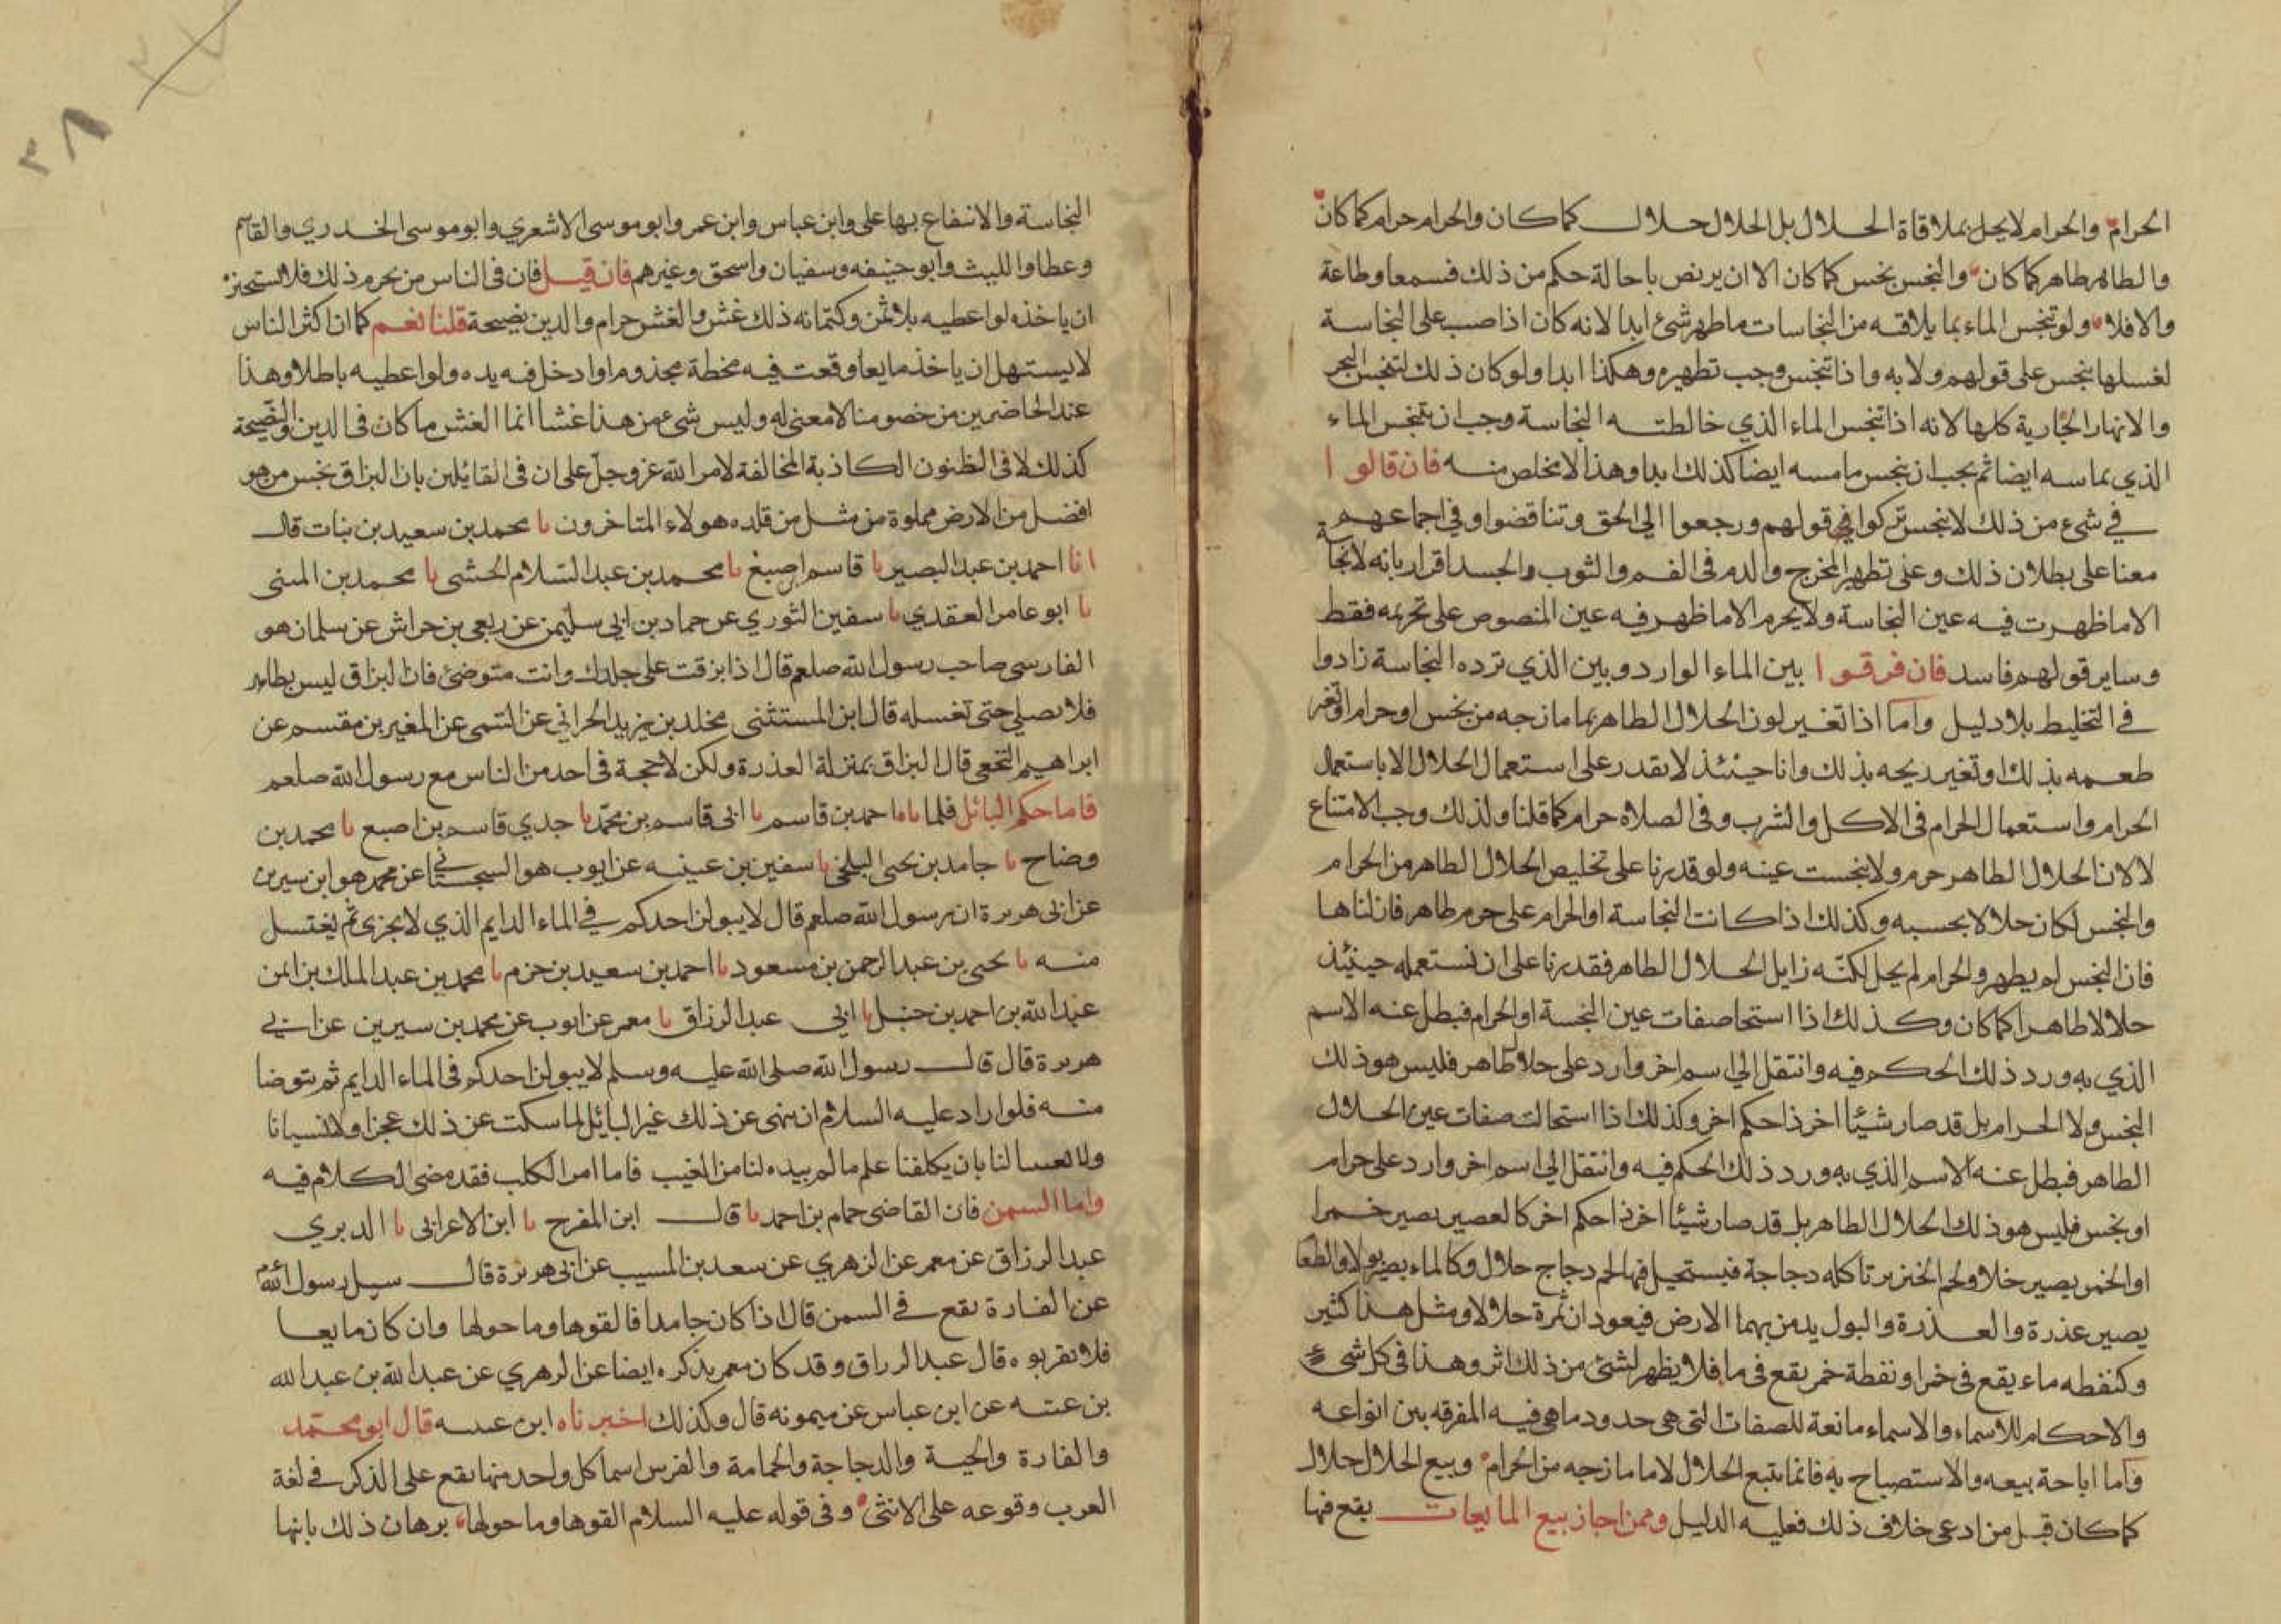 الحرام والحرام لا يحل بملاقاة الحلال بل الحلال حلال كما كان والحرام حرام كما كان
والطاهر طاهر كما كان والنجس نجس كما كان الا ان يرد نص باحالة حكم من ذلك فسمعا وطاعة
والافلا ولو تنجس الماء بما يلاقيه من النجاسات ما طهر شئ ابدا لانه كان اذا صب على النجاسة
لغسلها ينجس على قولهم ولا به واذا تنجس وجب تطهيره وهكذا ابدا ولو كان ذلك لتنجس البحر
والانهار الجارية كلها لانه اذا تنجس الماء الذي خالطته النجاسة وجب ان يتنجس الماء
الذي يماسه ايضا ثم يجب ان ينجس ما مسه ايضا كذلك ابدا وهذا لا مخلص منه فان قالوا
في شيء من ذلك لا ينجس تركوا قولهم ورجعوا الى الحق وتناقضوا وفي اجماعهم
معنا على بطلان ذلك وعلى تطهير المخرج والدم فى الفم والثوب والجسد اقرار بانه لا نجاسة
الا ما ظهرت فيه عين النجاسة ولا يحرم الا ما ظهر فيه عين المنصوص على تحريمه فقط
وساير قولهم فاسد فان فرقوا بين الماء الوارد وبين الذي ترده النجاسة زادوا
في التخليط بلا دليل واما اذا تغير لون الحلال الطاهر بما مازجه من نجس او حرام او تغير
طعمه بذلك او تغير ريحه بذلك وانا حينئذ لا نقدر على استعمال الحلال الا باستعمال
الحرام واستعمال الحرام فى الاكل والشرب وفى الصلاة حرام كما قلنا ولذلك وجب الامتناع
لا لان الحلال الطاهر حرم ولا نجست عينه ولو قدرنا على تخليص الحلال الطاهر من الحرام
والنجس لكان حلالا بحسبه وكذلك اذا كانت النجاسة او الحرام على جرم طاهر فازلناها
فان النجس لم يطهر والحرام لم يحل لكنه زايل الحلال الطاهر فقدرنا على ان نستعمله حينئذ
حلالا طاهرا كما كان وكذلك اذا استحا صفات عين النجسة او الحرام فبطل عنه الاسم
الذي به ورد ذلك الحكم فيه وانتقل الي اسم اخر وارد على حلال طاهر فليس هو ذلك
النجس ولا الحرام بل قد صار شيئا اخر ذا حكم اخر وكذلك اذا استحالت صفات عين الحلال
الطاهر فبطل عنه الاسم الذي به ورد ذلك الحكم فيه وانتقل الي اسم اخر وارد على حرام
او نجس فليس هو ذلك الحلال الطاهر بل قد صار شيئا اخر ذا حكم اخر كالعصير يصير خمرا
او الخمر يصير خلا ولحم الخنزير تاكله دجاجة فيستحيل فيها لحم دجاج حلال وكالماء يصير بولا والطعام
يصير عذرة والعذرة والبول يدهن بهما الارض فيعودان ثمرة حلالا ومثل هذا كثير
وكنفطه ماء يقع فى خمر او نفطة خمر يقع فى ما فلا يظهر لشئ من ذلك اثر وهذا فى كل شى
والاحكام للاسماء والاسماء مانعة للصفات التى هى حدود ماهى فيه المفرقه بين انواعه
واما اباحة بيعه والاستصباح به فانما يتبع الحلال لا ما مازجه من الحرام وبيع الحلال حلال
كما كان قبل من ادعى خلاف ذلك فعليه الدليل وممن اجاز بيع المايعات يقع فيها
النجاسة والانتفاع بها على وابن عباس وابن عمر وابو موسى الاشعري وابو موسى الخدري والقاسم
وعطا والليث وابو حنيفه وسفيان واسحق وغيرهم فان قيل فان فى الناس من يحرم ذلك فلا يستجيز
ان ياخذه لو اعطيه بلا ثمن وكتمانه ذلك غش والغش حرام والدين نصيحة قلنا نعم كما ان اكثر الناس
لا يستسهل ان ياخذ مايعا وقعت فيه مخطة مجذوم او ادخل فيه يده ولو اعطيه باطلا وهذا
عند الحاضرين من خصومنا لا معنى له وليس شيء من هذا غشا انما الغش ما كان فى الدين والنصيحة
كذلك لا فى الظنون الكاذبة المخالفة لامر الله عز وجل على ان فى القايلين بان البزاق نجس من هو
افضل من الارض مملوة من مثل من قلده هولاء المتاخرون نا محمد بن سعيد بن نبات قال
انا احمد بن عبد البصير نا قاسم اصبغ نا محمد بن عبد السلام الخشنى نا محمد بن المثنى
نا ابو عامر العقدي نا سفين الثوري عن حماد بن ابي سليمن عن ربعي بن حراش عن سلمان هو
الفارسى صاحب رسول الله صلعم قال اذا بزقت على جلدك وانت متوضئ فان البزاق ليس بطاهر
فلا تصلي حتى تغسله قال ابن المستثنى مخلد بن يزيد الحراني عن التيمى عن المغير بن مقسم عن
ابراهيم النخعى قال البزاق بمنزلة العذرة ولكن لا حجة فى احد من الناس مع رسول الله صلعم
فاما حكم البائل فلما ناه احمد بن قاسم نا ابى قاسم بن محمد نا جدي قاسم بن اصبع نا محمد بن
وضاح نا جامد بن يحيى البلخى نا سفين بن عينه عن ايوب هو السجستاني عن محمد هو ابن سيرين
عن ابى هريرة ان رسول الله صلعم قال لا يبولن احدكم في الماء الدايم الذي لا يجرى ثم يغتسل
منه نا يحيى بن عبد الرحمن بن مسعود نا احمد بن سعيد بن حزم نا محمد بن عبد الملك بن ايمن
عبد الله بن احمد بن حنبل نا ابي عبد الرزاق نا معمر عن ايوب عن محمد بن سيرين عن ابي
هريرة قال قال رسول الله صلى الله عليه وسلم لا يبولن احدكم فى الماء الدايم ثم يتوضا
منه فلو اراد عليه السلام ان ينهى عن ذلك غير البائل لما سكت عن ذلك عجزا ولا نسيانا
ولا تعنيتا لنا بان يكلفنا علم ما لم يبيده لنا من الغيب فاما امر الكلب فقد مضى الكلام فيه
واما السمن فان القاضى حمام بن احمد نا قال ابن المفرح نا ابن الاعرابى نا الدبري
عبد الرزاق عن معمر عن الزهري عن سعد بن المسيب عن ابى هريرة قال سيل رسول الله
عن الفارة تقع في السمن قال اذا كان جامدا فالقوها وما حولها وان كان مايعا
فلا تقربوه قال عبد الرزاق وقد كان معمر يذكره ايضا عن الزهري عن عبد الله بن عبد الله
بن عتبه عن ابن عباس عن ميمونه قال وكذلك اخبرناه ابن عيينه قال ابو محمد
والفارة والحية والدجاجة والحمامة والفرس اسما كل واحد منها يقع على الذكر في لغة
العرب وقوعه على الانثى وفى قوله عليه السلام القوها وما حولها برهان ذلك بانها
٣٨